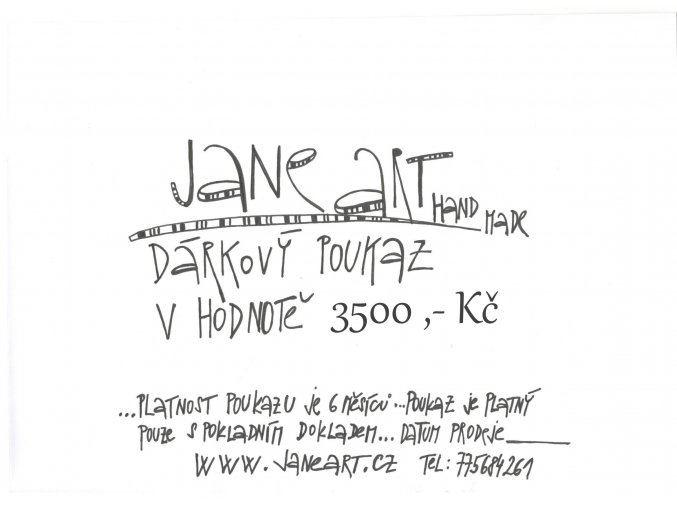 Jane ART HAND MADE
DÁRKOVÝ POUKAZ
V HODNOTĚ 3500 ,- Kč
...PLATNOST POUKAZU je 6 MĚSÍCŮ...POUKAZ je PLATNÝ
POUZE S POKLADNÍM DOKLADEM... DATUM PRODEJE______
WWW.JANEART.CZ TEL: 775684261